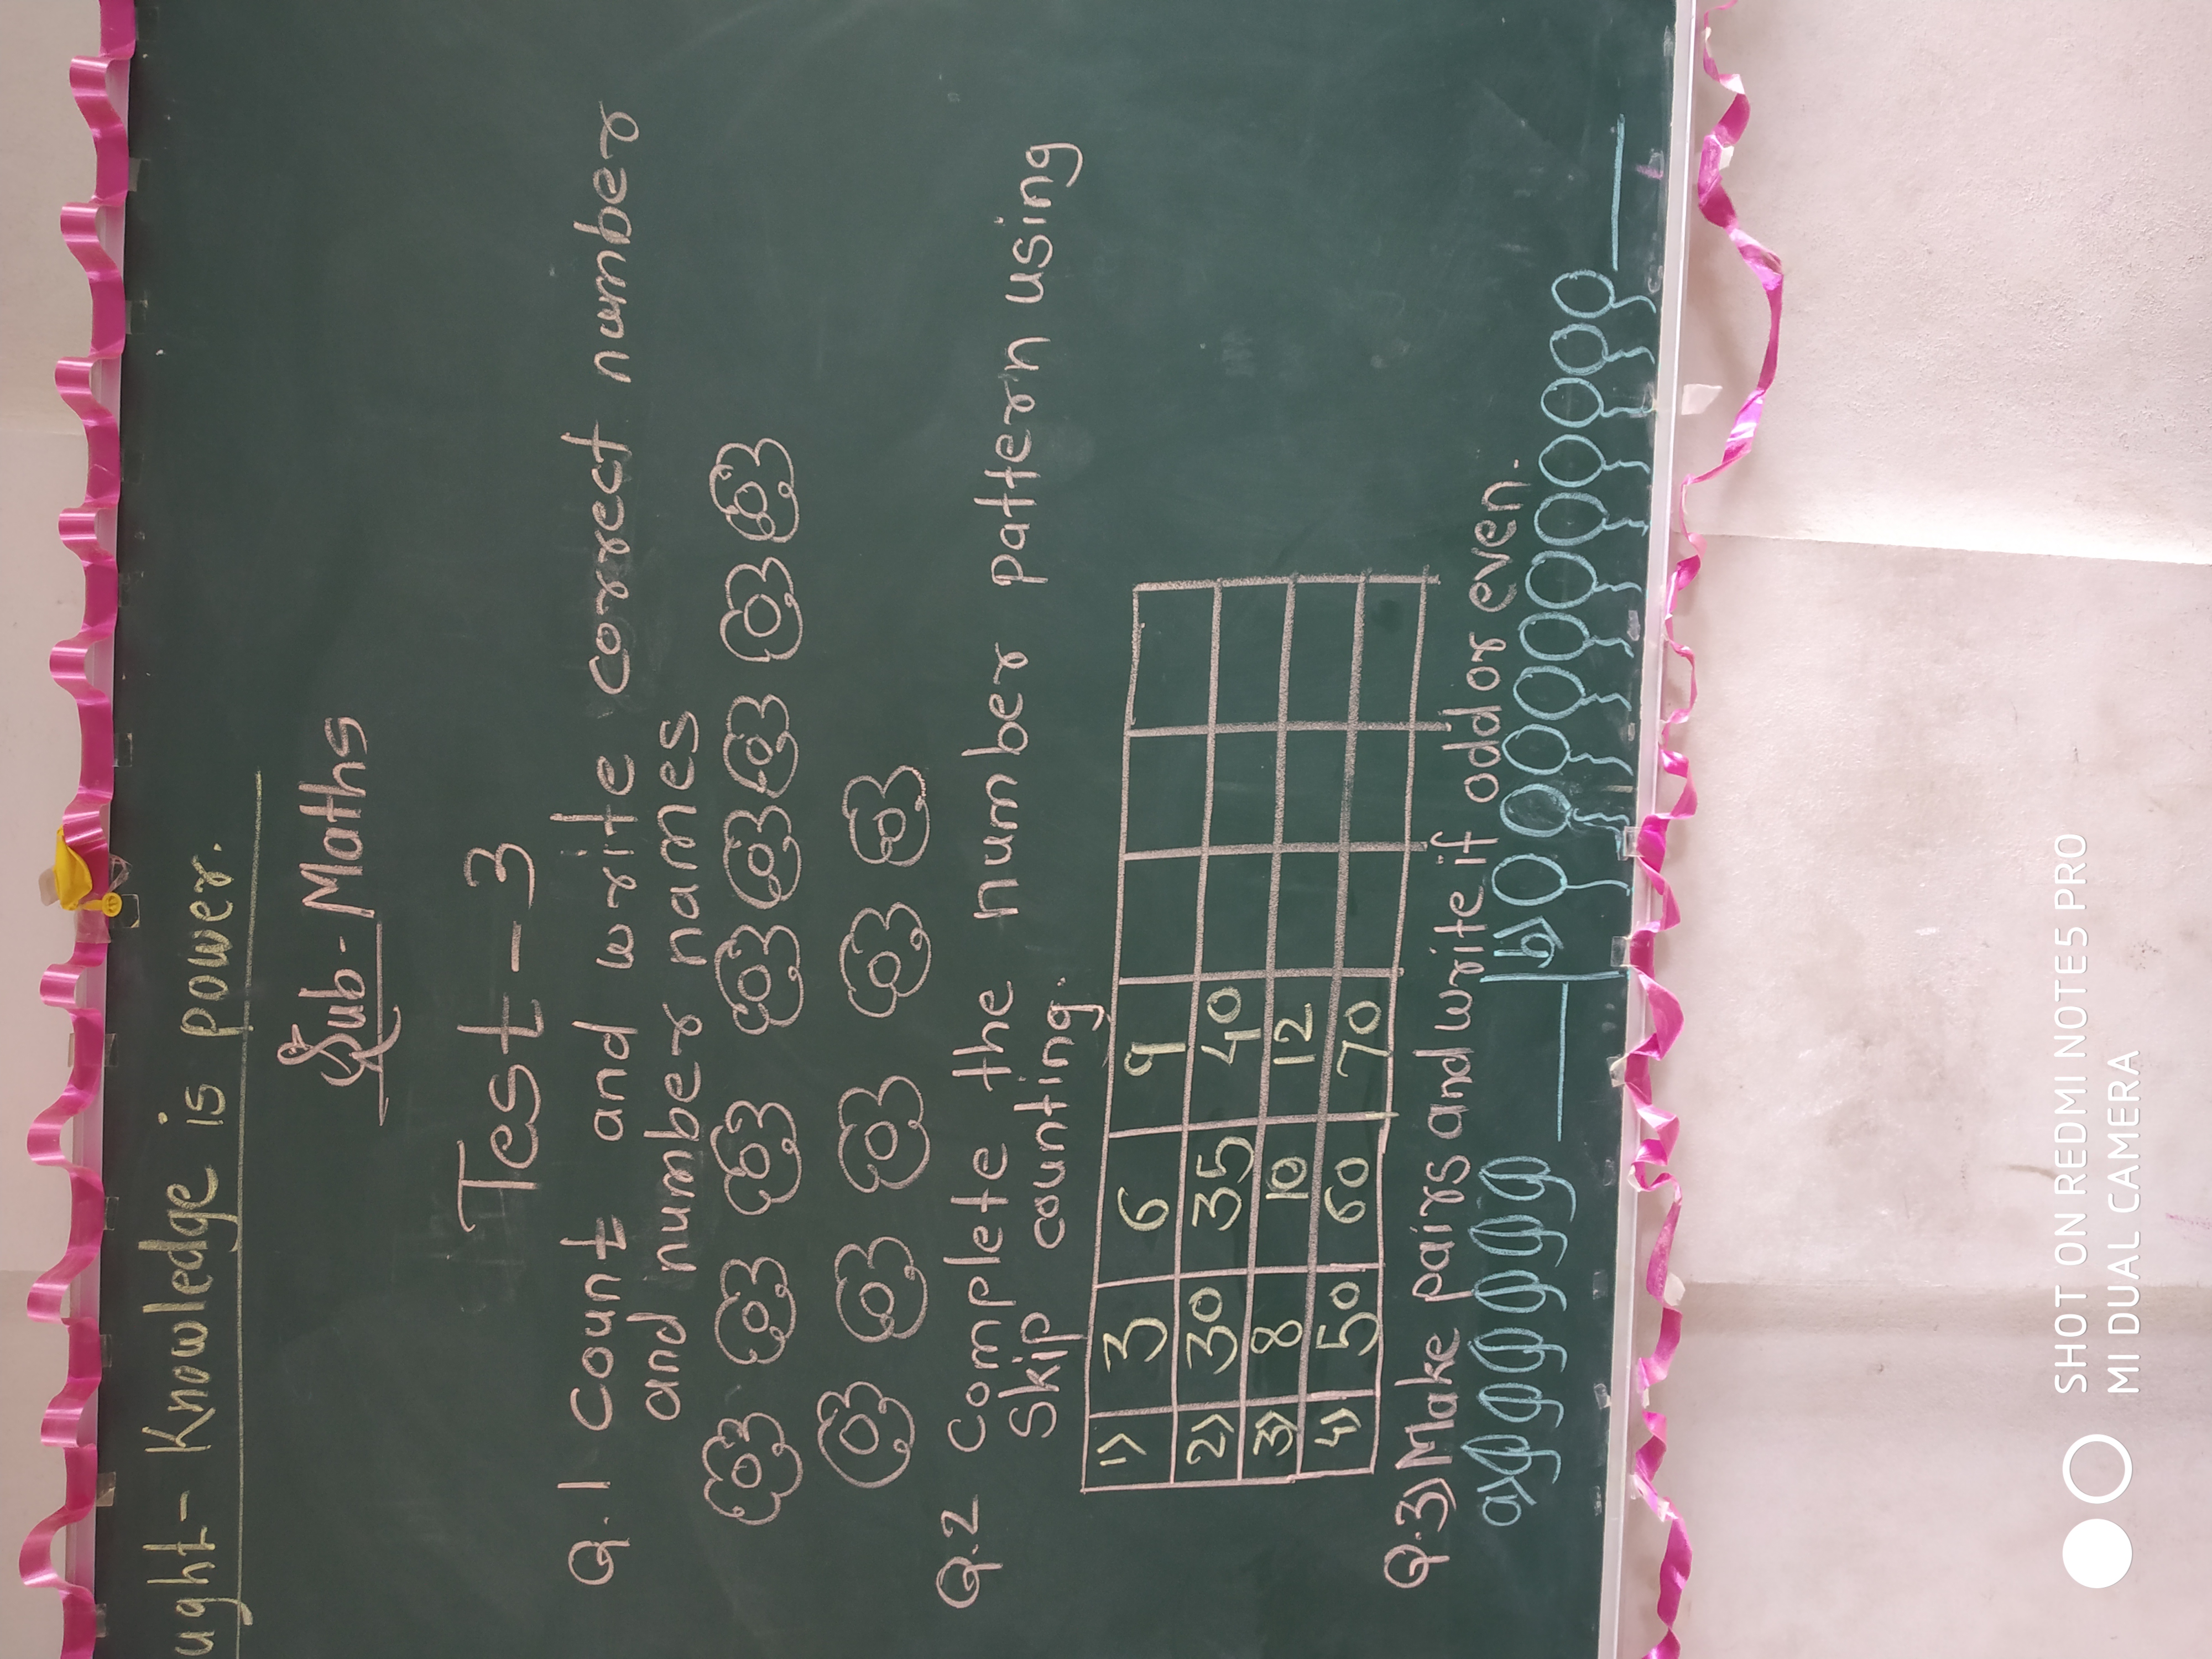 ught- Knowledge is power.
Sub - Maths
Test - 3
Q.1 Count and write correct number
and number names
Q.2 Complete the number pattern using
Skip counting.
1) 3 6 9
2) 30 35 40
3) 8 10 12
4) 50 60 70
Q.3) Make pairs and write if odd or even.
a) b)
SHOT ON REDMI NOTE5 PRO
MI DUAL CAMERA